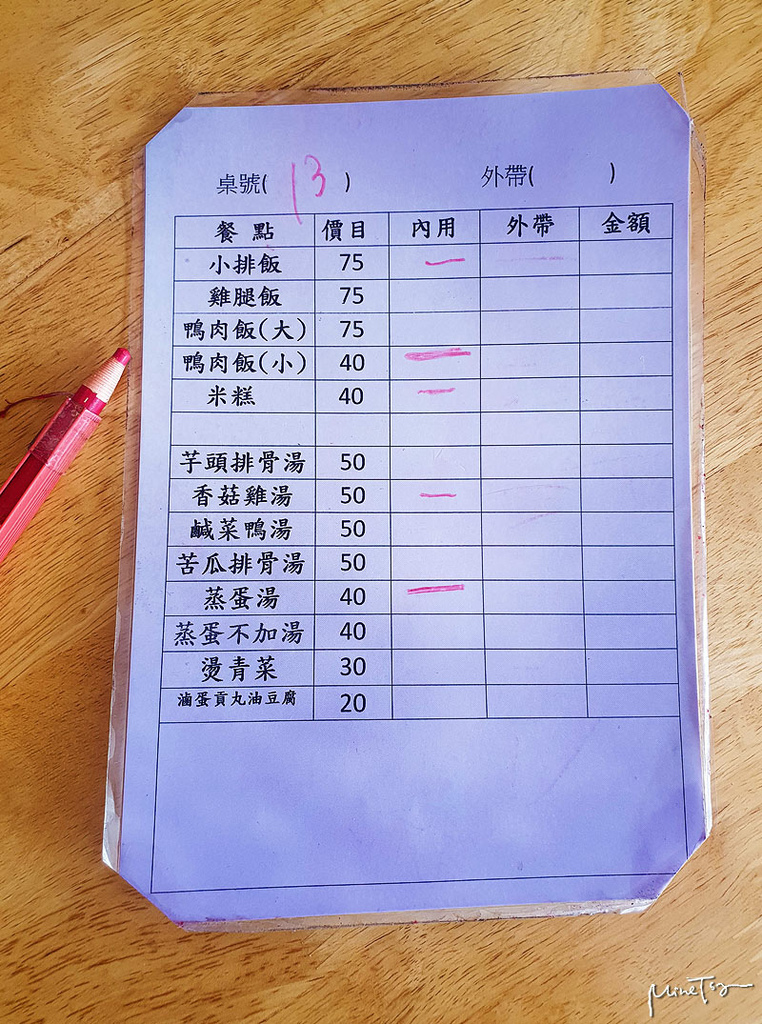 桌號( 13 ) 外帶( )
餐 點 價目 內用 外帶 金額
小排飯 75 一
雞腿飯 75
鴨肉飯(大) 75
鴨肉飯(小) 40 一
米糕 40 一
芋頭排骨湯 50
香菇雞湯 50 一
鹹菜鴨湯 50
苦瓜排骨湯 50
蒸蛋湯 40 一
蒸蛋不加湯 40
燙青菜 30
滷蛋貢丸油豆腐 20